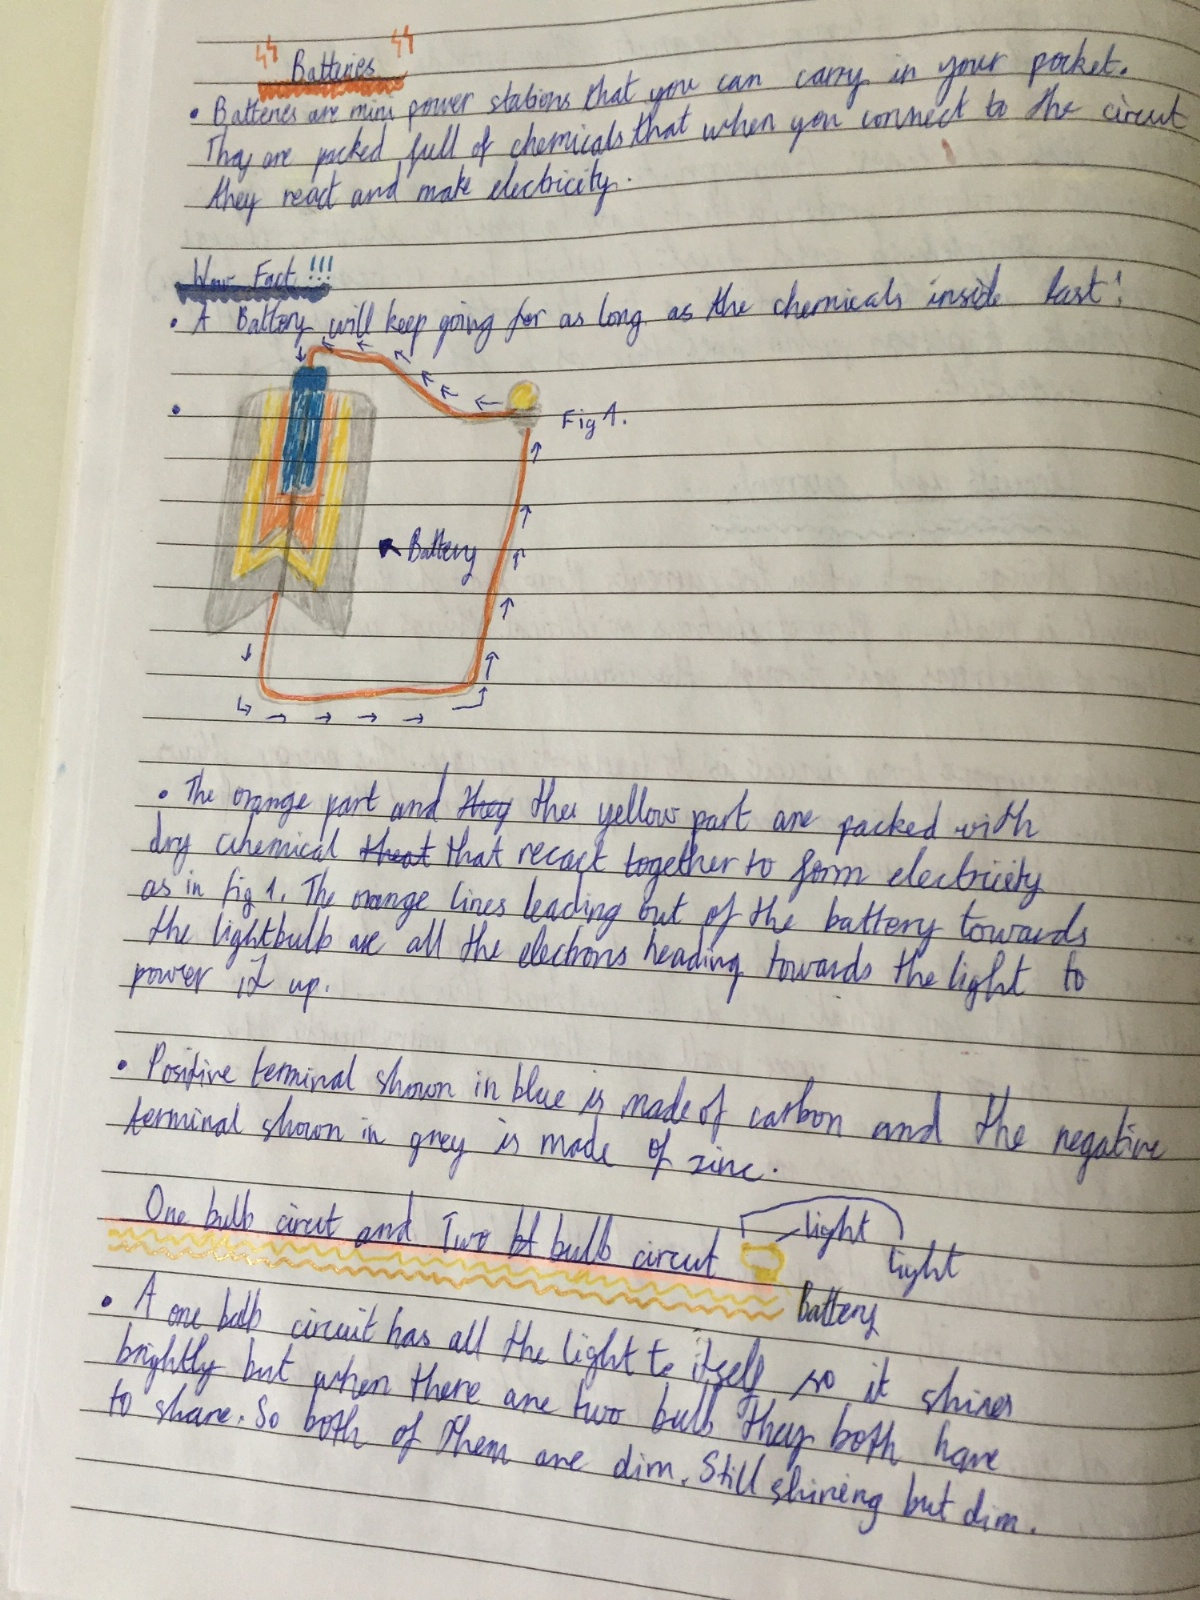 Batteries
• Batteries are mini power stations that you can carry in your pocket.
They are packed full of chemicals that when you connect to the circuit
they react and make electricity.
Wow Fact !!!
• A Battery will keep going for as long as the chemicals inside last!
•
Fig 1.
Battery
• The orange part and they the yellow part are packed with
dry cuhemical theat that recact together to form electricity
as in fig 1. The orange lines leading out of the battery towards
the lightbulb are all the electrons heading towards the light to
power it up.
• Positive terminal shown in blue is made of carbon and the negative
terminal shown in grey is made of zinc.
One bulb circut and Two bl bulb circut
light
light
Battery
• A one bulb circuit has all the light to itself so it shines
brightly but when there are two bulb they both have
to share. So both of them are dim. Still shining but dim.